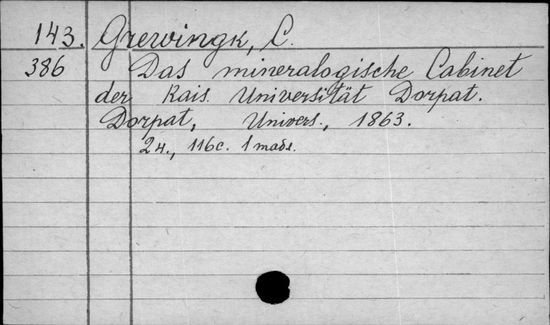 143. Grewingk, C.
386 Das mineralogische Cabinet
der Kais. Universität Dorpat.
Dorpat, Univers., 1863.
2 н., 116 с. 1 табл.